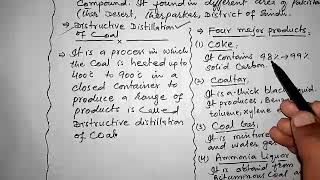 Compound. It found in different area of Pakistan
(Thar Desert, Tharparkar, District of Sindh.
⇒ Destructive Distillation
of Coal
⇒ It is a process in which
the Coal is heated up to
400°C to 900°C in a
closed Container to
produce a range of
products is called
Destructive distillation
of Coal
⇒ Four major products:
(1) Coke,
It contains 98%→99%
solid Carbon.
(2) Coaltar,
It is a thick black liquid.
It produces, Benzene
toluene, xylene
(3) Coal Gas,
It is mixture
and water ga
(4) Ammonia Liquor
It is obtained from
Bituminous Coal an